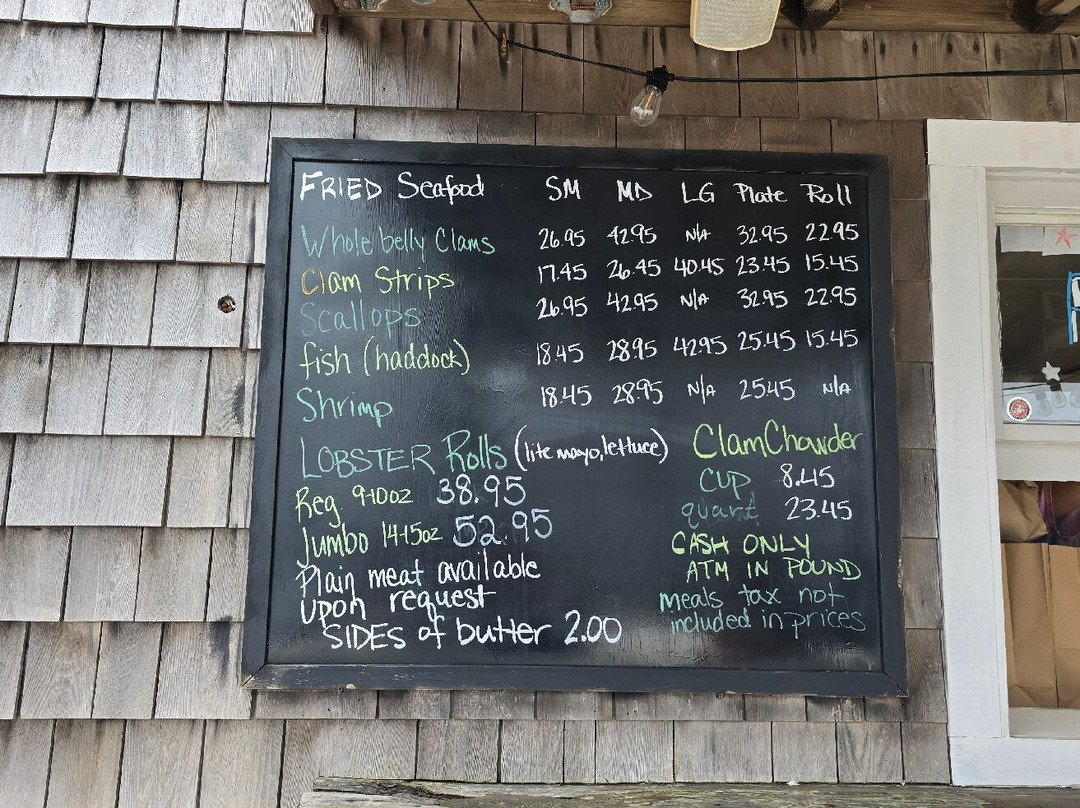 FRIED Seafood SM MD LG Plate Roll
Whole belly Clams 26.95 42.95 N/A 32.95 22.95
Clam Strips 17.45 26.45 40.45 23.45 15.45
Scallops 26.95 42.95 N/A 32.95 22.95
fish (haddock) 18.45 28.95 42.95 25.45 15.45
Shrimp 18.45 28.95 N/A 25.45 N/A
LOBSTER Rolls (lite mayo, lettuce)
Reg 9-10oz 38.95
Jumbo 14-15oz 52.95
Plain meat available
upon request
SIDES of butter 2.00
Clam Chowder
CUP 8.45
quart 23.45
CASH ONLY
ATM IN POUND
meals tax not
included in prices